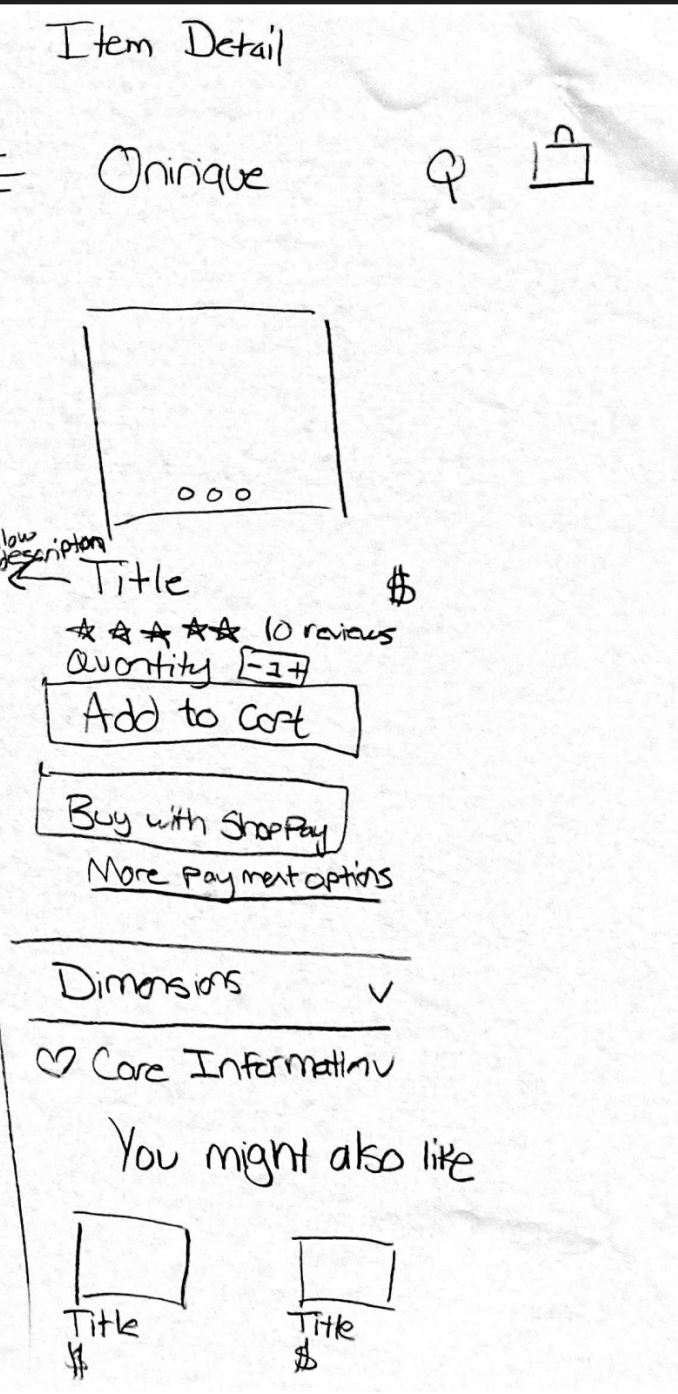 Item Detail
Onirique
Title $
10 reviews
Quantity - 1 +
Add to Cart
Buy with ShopPay
More payment options
Dimensions
Care Information
You might also like
Title Title
$ $